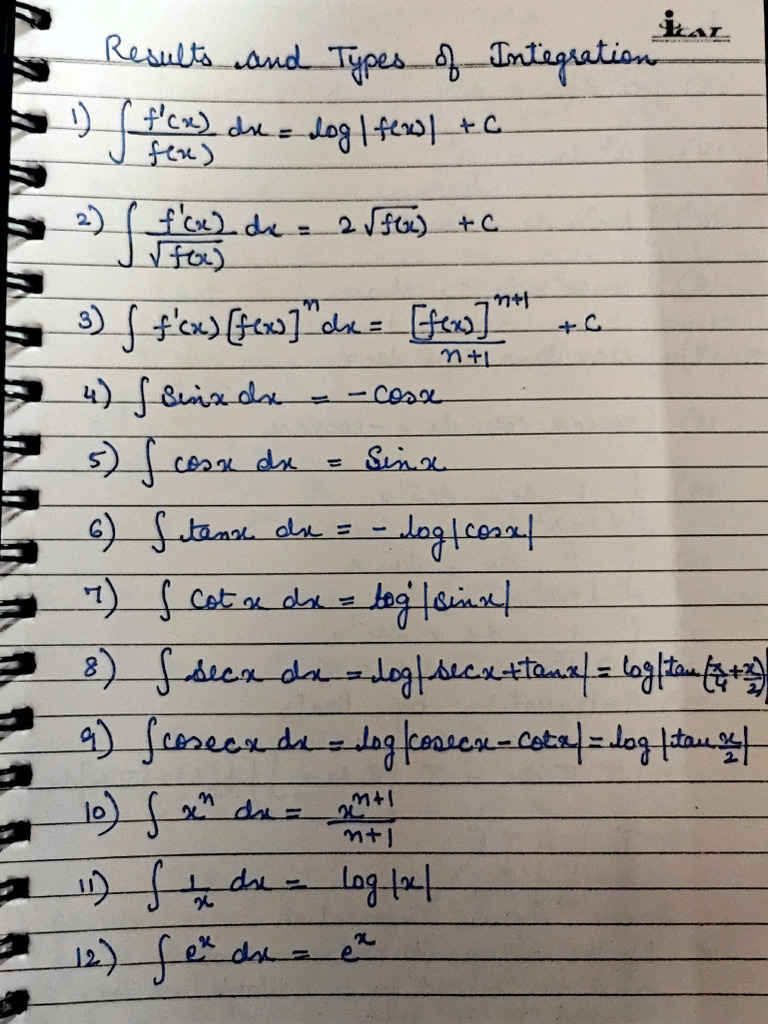 iCAT
Results and Types of Integration
1) ∫ f'(x)/f(x) dx = log|f(x)| + C
2) ∫ f'(x)/√f(x) dx = 2√f(x) + C
3) ∫ f'(x) [f(x)]^n dx = [f(x)]^(n+1)/(n+1) + C
4) ∫ sinx dx = -cosx
5) ∫ cosx dx = Sinx
6) ∫ tanx dx = - log|cosx|
7) ∫ cot x dx = log|sinx|
8) ∫ secx dx = log|secx+tanx| = log|tan(π/4+x/2)|
9) ∫ cosecx dx = log|cosecx-cotx| = log|tan x/2|
10) ∫ x^n dx = x^(n+1)/(n+1)
11) ∫ 1/x dx = log|x|
12) ∫ e^x dx = e^x